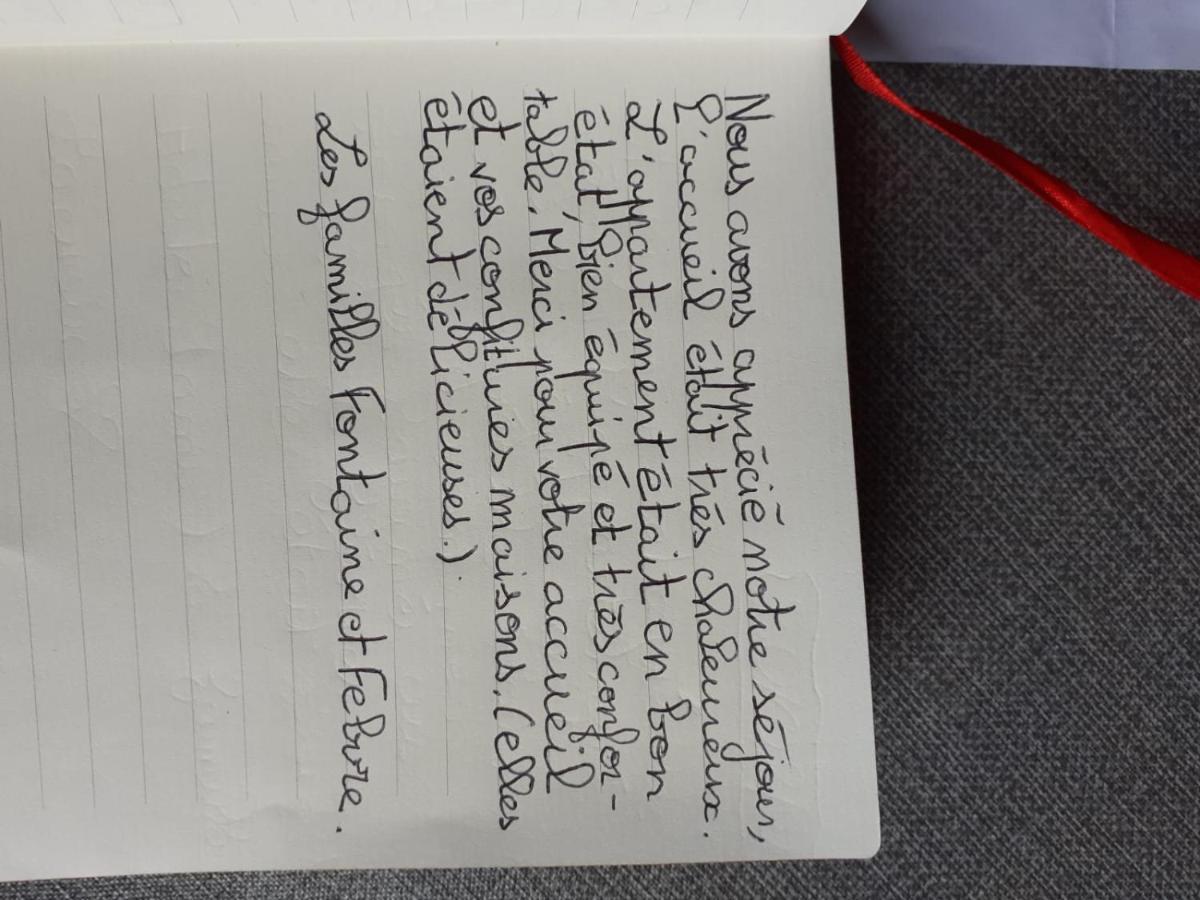 Nous avons apprécié notre séjour,
l'accueil était très chaleureux.
L'appartement était en bon
état, bien équipé et très confor-
table. Merci pour votre accueil
et vos confitures maisons. (elles
étaient délicieuses.)
Les familles Fontaine et Febvre.